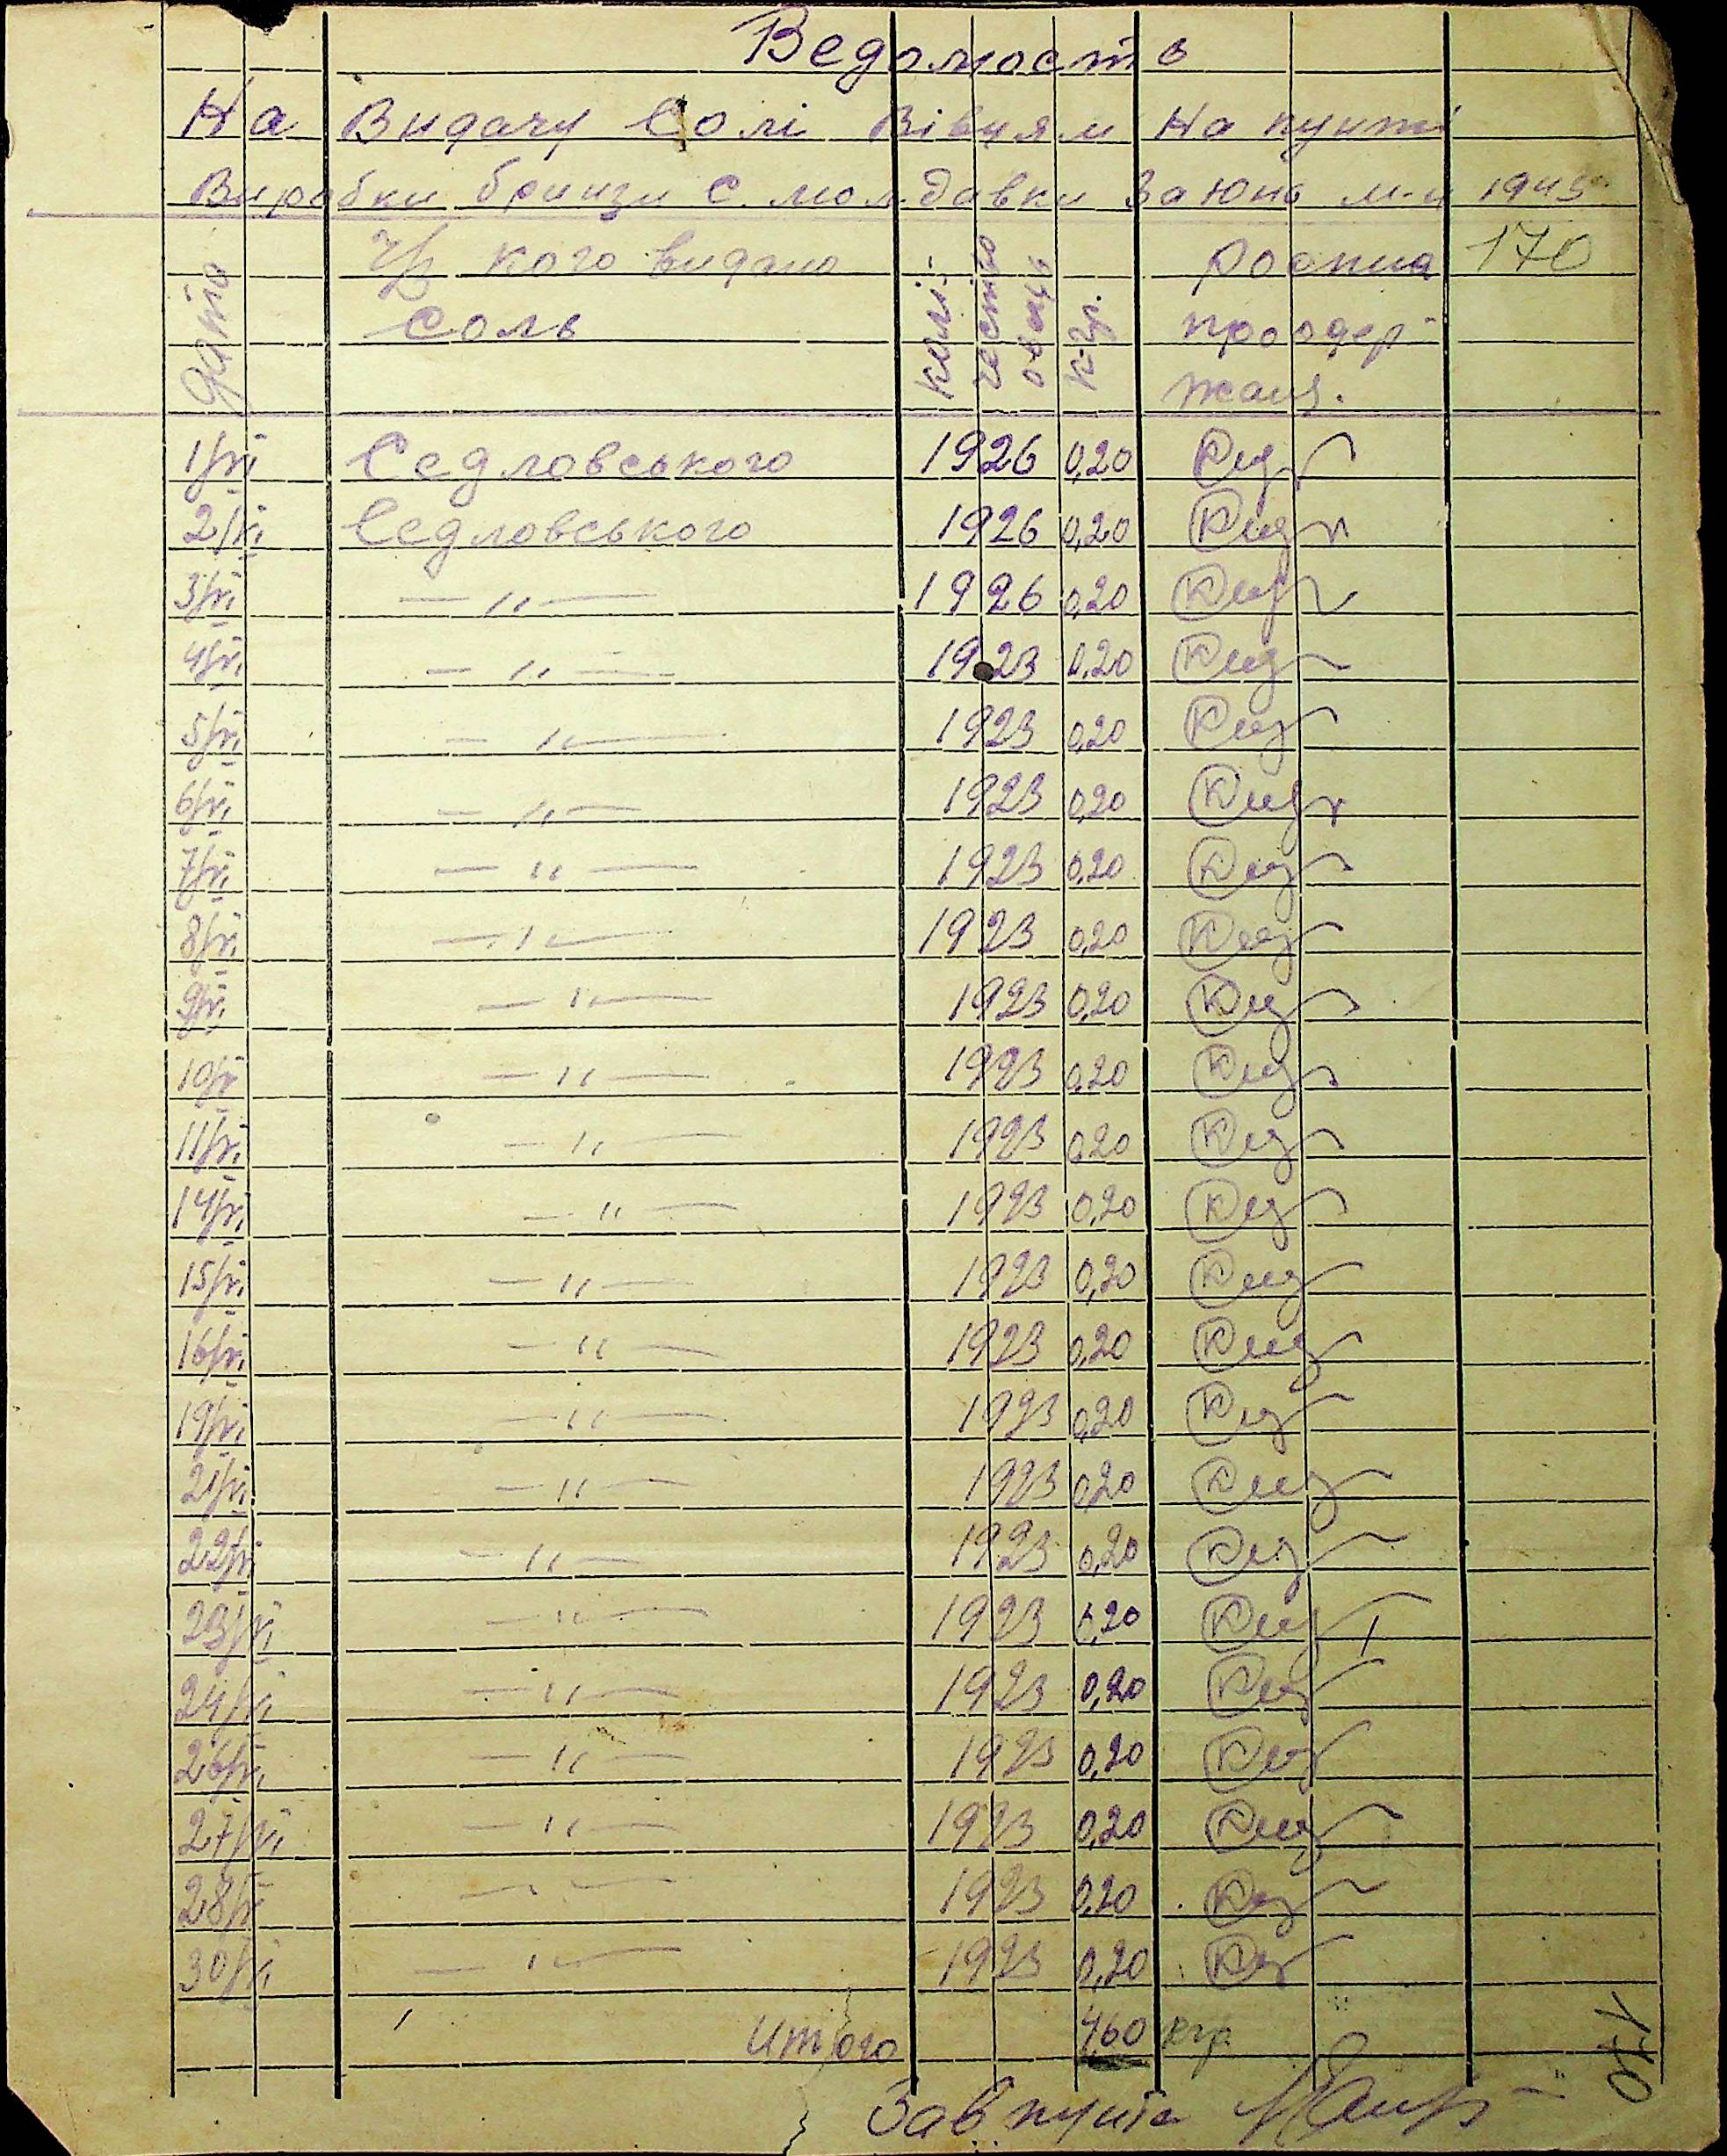 Ведомость
На Видачу Солі Вівцям На пункті
Виробки бринзи с. молдавки За Юнь м-ц 1945
Дато Ч/з кого видано соль Колі-чество овець к-гр. Роспис про одержаня. 170
1/VI Седловського 1926 0,20
2/VI Седловського 1926 0,20
3/VI — 〃 — 1926 0,20
4/VI — 〃 — 1923 0,20
5/VI — 〃 — 1923 0,20
6/VI — 〃 — 1923 0,20
7/VI — 〃 — 1923 0,20
8/VI — 〃 — 1923 0,20
9/VI — 〃 — 1923 0,20
10/VI — 〃 — 1923 0,20
11/VI — 〃 — 1923 0,20
14/VI — 〃 — 1923 0,20
15/VI — 〃 — 1923 0,20
16/VI — 〃 — 1923 0,20
19/VI — 〃 — 1923 0,20
21/VI — 〃 — 1923 0,20
22/VI — 〃 — 1923 0,20
23/VI — 〃 — 1923 0,20
24/VI — 〃 — 1923 0,20
26/VI — 〃 — 1923 0,20
27/VI — 〃 — 1923 0,20
28/VI — 〃 — 1923 0,20
30/VI — 〃 — 1923 0,20
Итого 4,60 кгр
Зав пункта
170